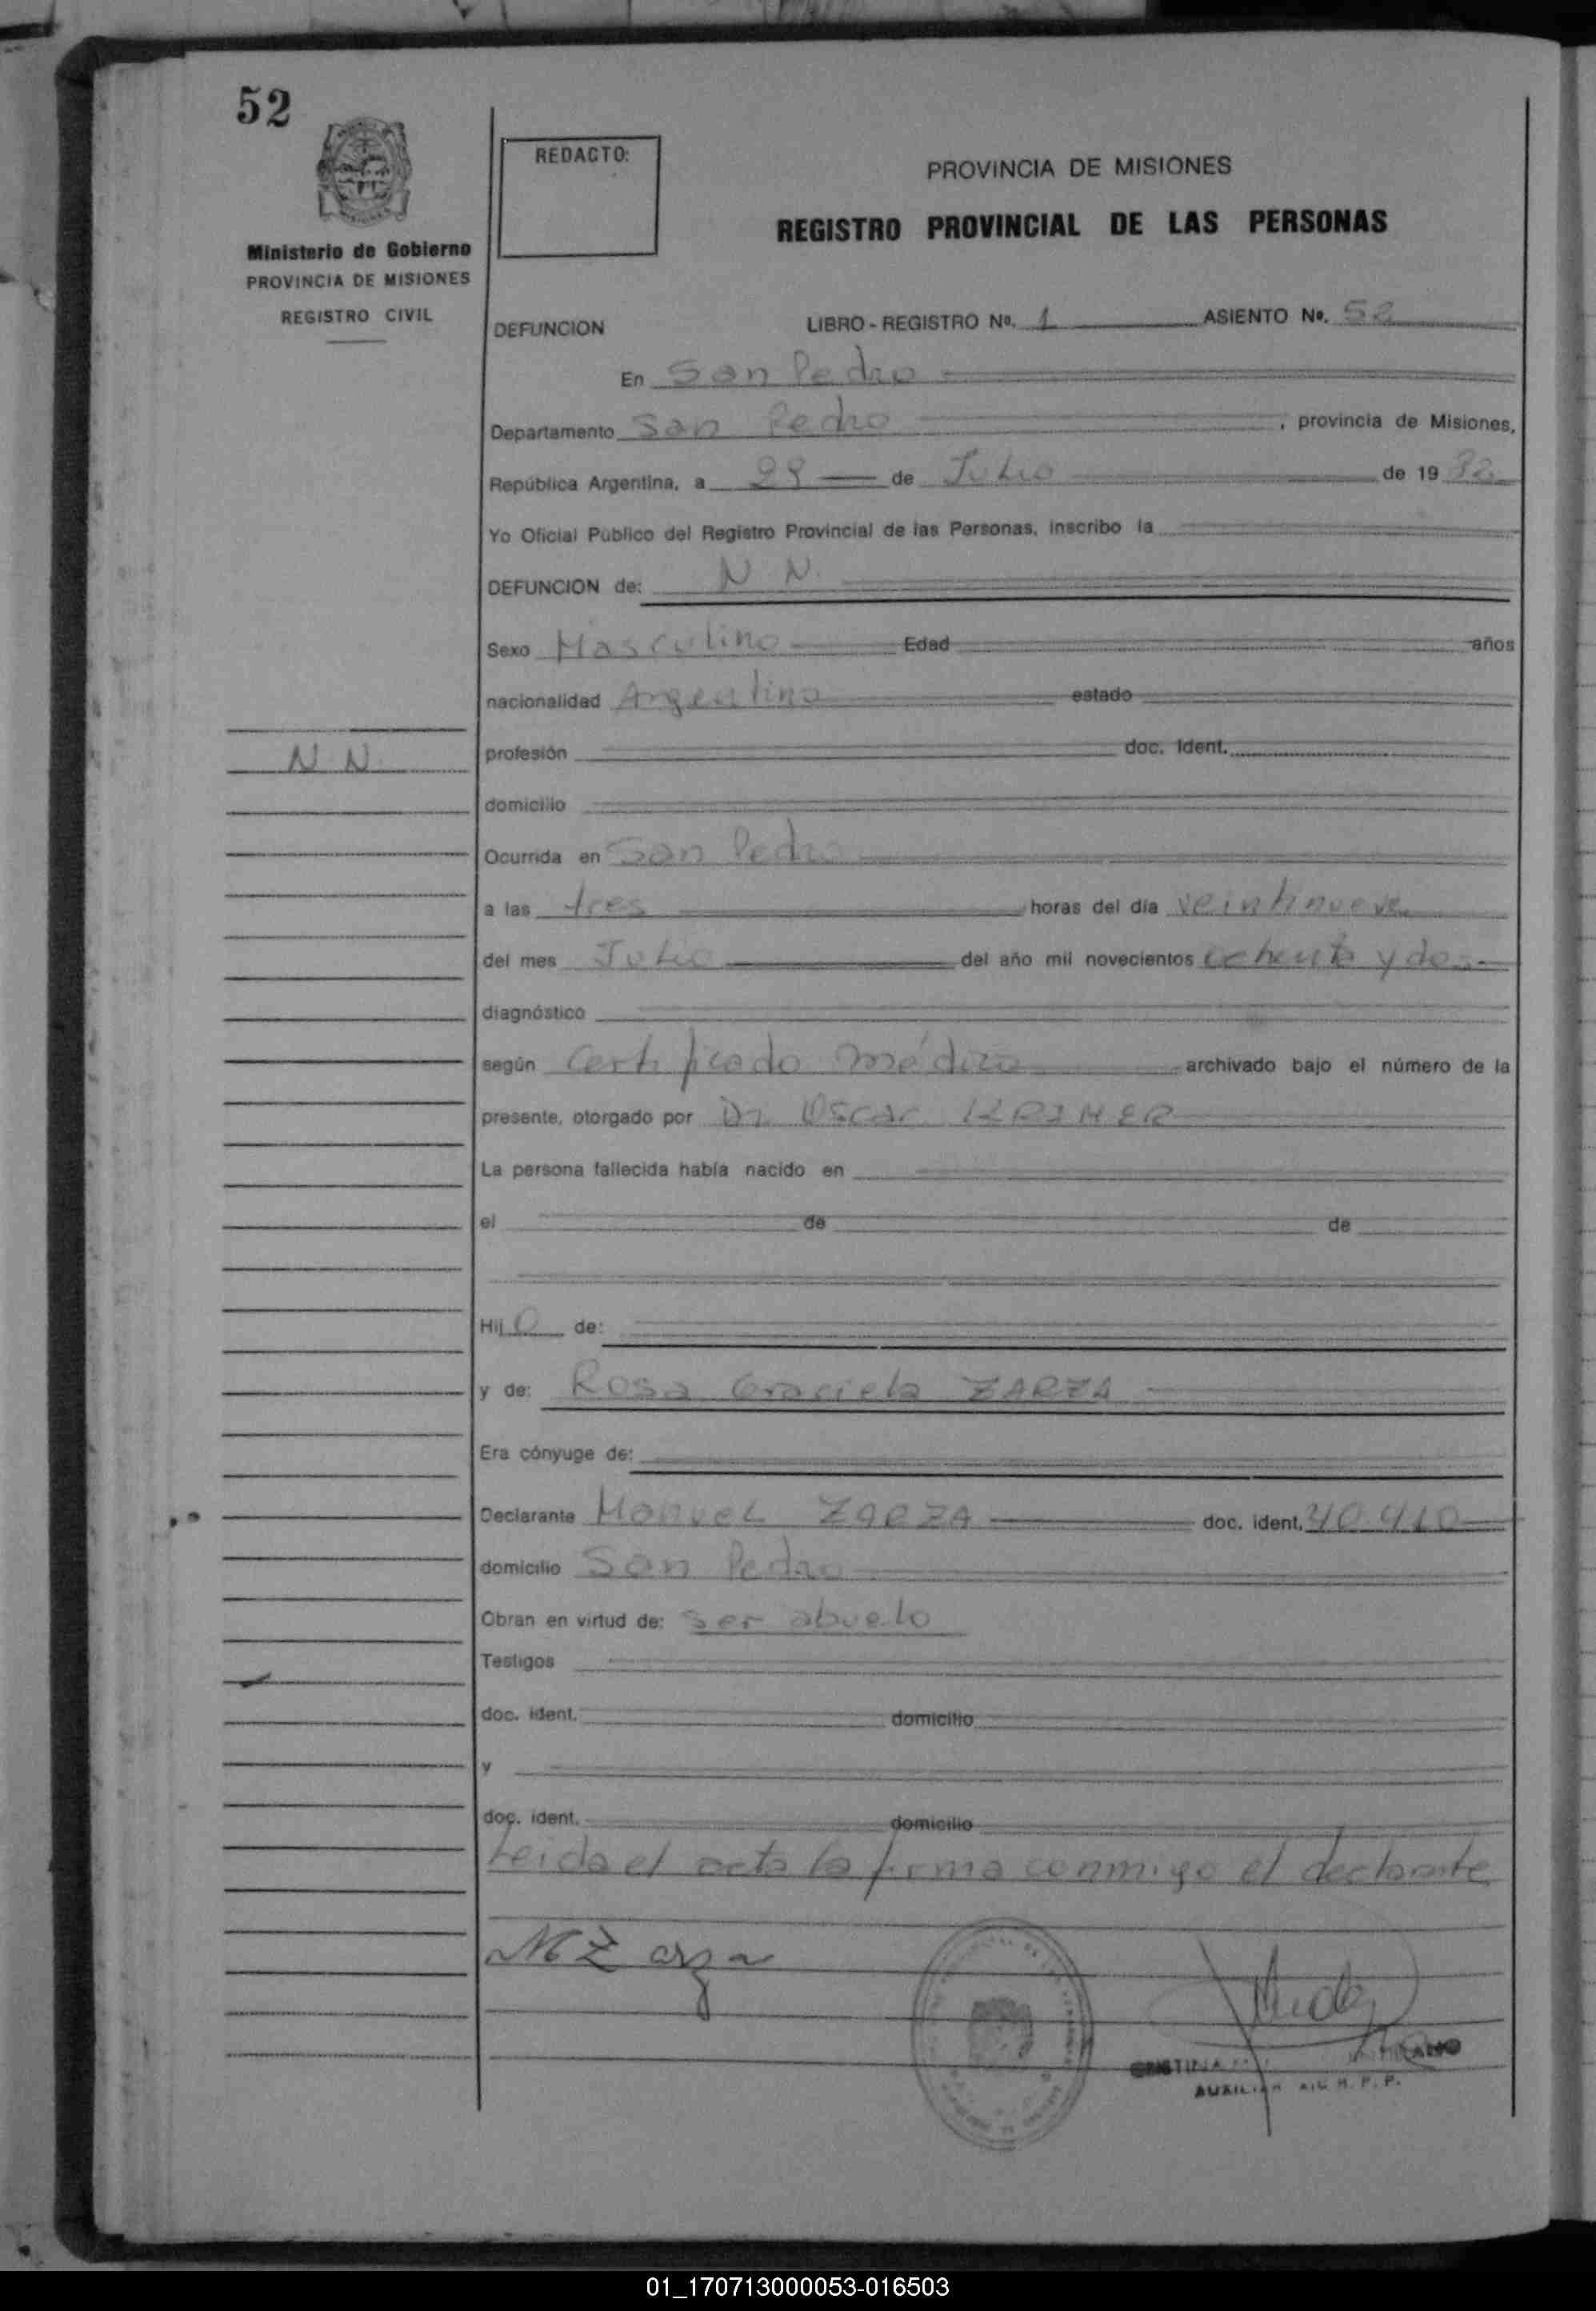 52
REDACTO:
PROVINCIA DE MISIONES
REGISTRO PROVINCIAL DE LAS PERSONAS
Ministerio de Gobierno
PROVINCIA DE MISIONES
REGISTRO CIVIL
DEFUNCION LIBRO - REGISTRO Nº. 1 ASIENTO Nº. 52
En San Pedro
Departamento San Pedro, provincia de Misiones,
República Argentina, a 29 de Julio de 19 82
Yo Oficial Público del Registro Provincial de las Personas, inscribo la
DEFUNCION de: N. N.
Sexo Masculino Edad años
nacionalidad Argentina estado
N N.
profesión doc. Ident.
domicilio
Ocurrida en San Pedro
a las tres horas del día veintinueve
del mes Julio del año mil novecientos ochenta y dos
diagnóstico
según Certificado médico archivado bajo el número de la
presente, otorgado por Dr. Oscar KRIMER
La persona fallecida había nacido en
el de de
Hij o de:
y de: Rosa Graciela ZARZA
Era cónyuge de:
Declarante Manuel ZARZA doc. ident. 40.410
domicilio San Pedro
Obran en virtud de: ser abuelo
Testigos
doc. ident. domicilio
y
doc. ident. domicilio
Leida el acta la firma conmigo el declarante
M Zarza
CRISTINA
AUXILIAR
01_170713000053-016503